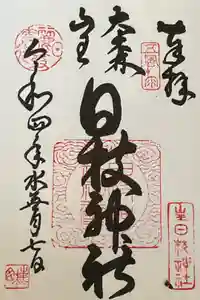 奉拝
山王日枝神社
大森
山王
日枝神社
令和四年水無月七日